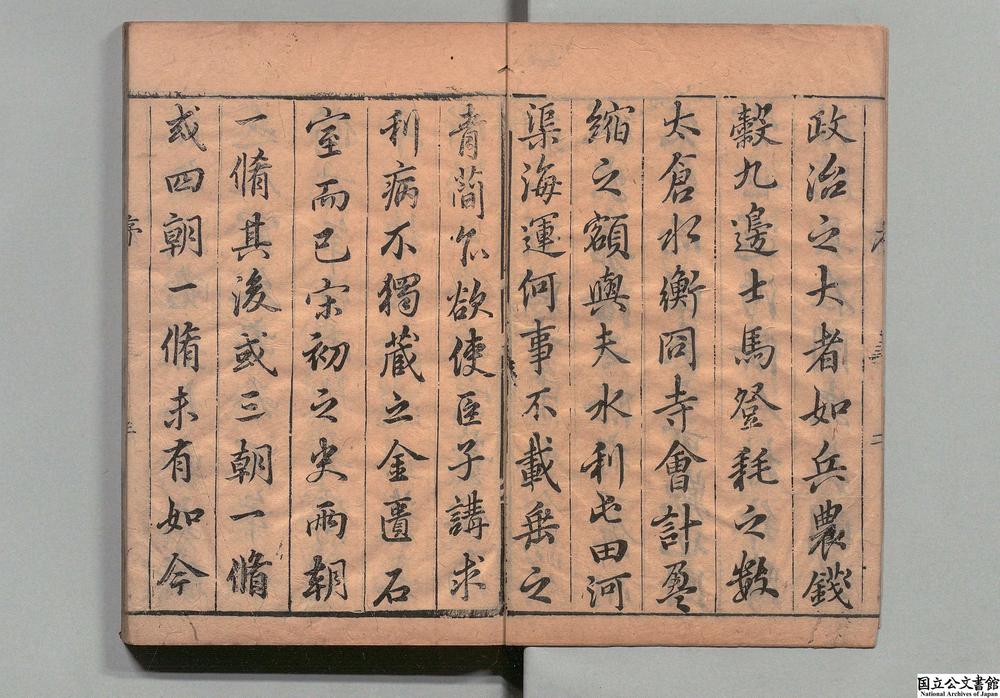 政治之大者如兵農錢
穀九邊士馬登耗之數
太倉水衡冏寺會計盈
縮之額與夫水利屯田河
渠海運何事不載無之
青簡尔欲使臣子講求
利病不獨蔵之金匱石
室而已宋初之史兩朝
一脩其後或三朝一脩
或四朝一脩未有如今
序
二
国立公文書館
National Archives of Japan